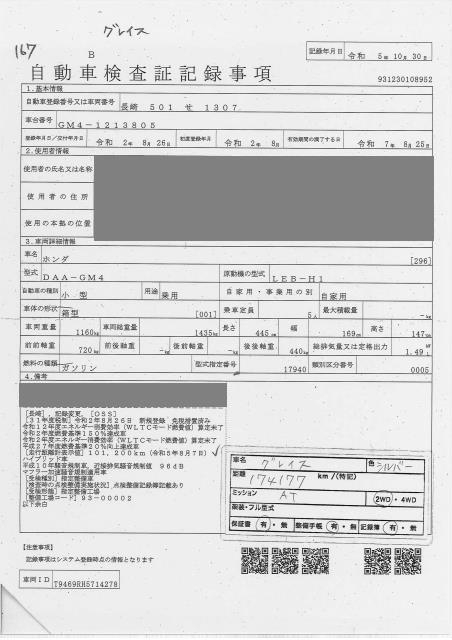 グレイス
167
B
記録年月日 令和 5年 10月 30日
自動車検査証記録事項
931230108952
1.基本情報
自動車登録番号又は車両番号 長崎 501 せ 1307
車台番号 GM4-1213805
登録年月日/交付年月日 令和 2年 8月 26日 初度登録年月 令和 2年 8月 有効期間の満了する日 令和 7年 8月 25日
2.使用者情報
使用者の氏名又は名称
使用者の住所
使用の本拠の位置
3.車両詳細情報
車名 ホンダ [296]
型式 DAA-GM4 原動機の型式 LEB-H1
自動車の種別 小型 用途 乗用 自家用・事業用の別 自家用
車体の形状 箱型 [001] 乗車定員 5人 最大積載量 -kg
車両重量 1160kg 車両総重量 1435kg 長さ 445cm 幅 169cm 高さ 147cm
前前軸重 720kg 前後軸重 -kg 後前軸重 -kg 後後軸重 440kg 総排気量又は定格出力 1.49
燃料の種類 ガソリン 型式指定番号 17940 類別区分番号 0005
4.備考
[長崎],記録変更,[OSS]
[31年度税制]令和2年8月26日 新規登録 免税措置済み
令和12年度エネルギー消費効率(WLTCモード燃費値)算定未了
令和2年度燃費基準150%達成車
令和2年度エネルギー消費効率(WLTCモード燃費値)算定未了
平成27年度燃費基準20%向上達成車
[走行距離計表示値]101,200km(令和5年8月7日)
ハイブリッド車
平成10年騒音規制車,近接排気騒音規制値 96dB
マフラー加速騒音規制適用車
[受検種別]指定整備車
[検査時の点検整備実施状況]点検整備記録簿記載あり
[受検形態]指定整備工場
[整備工場コード]93-00002
以下余白
車名 グレイス 色 シルバー
距離 174177 km/(特記)
ミッション AT 2WD・4WD
架装・フル型式
保証書 有・無 整備手帳 有・無 記録簿 有・無
【注意事項】
記録事項はシステム登録時点の情報となります
車両ID T9469RH5714278